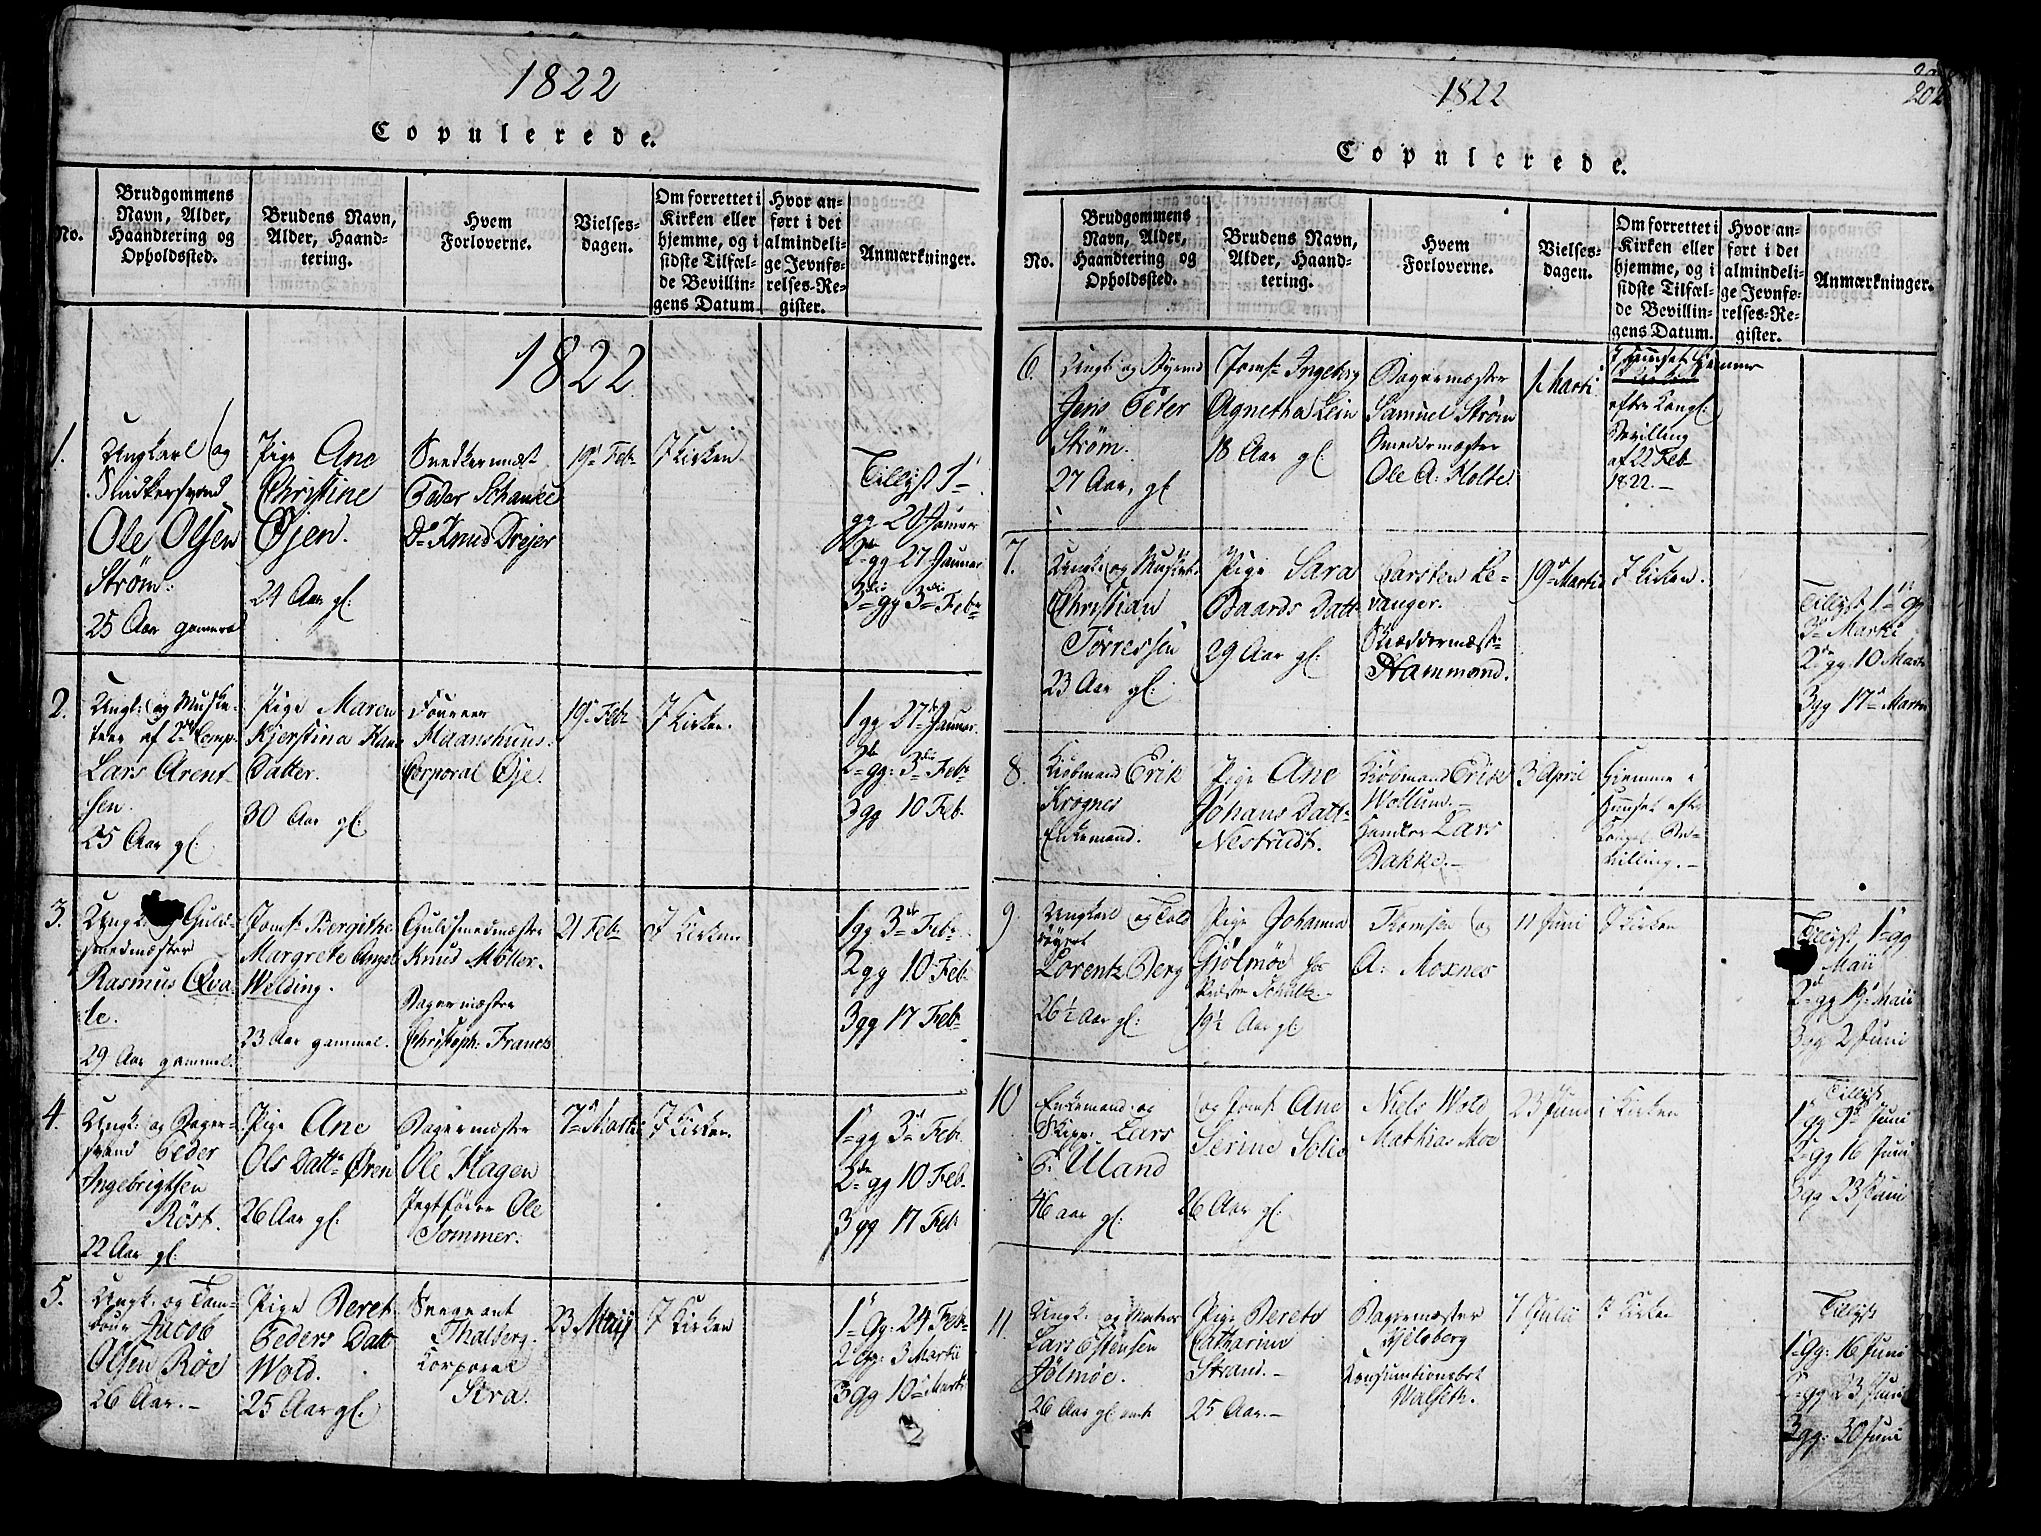 1822
Copulerede.
No.
Brudgommens
Navn, Alder,
Haandtering og
Opholdssted.
Brudens Navn,
Alder, Haand-
tering.
Hvem
Forloverne.
Vielses-
dagen.
Om forrettet i
Kirken eller
hjemme, og i
sidste Tilfæl-
de Bevillin-
gens Datum
Hvor an-
ført i det
almindeli-
ge Jevnfø-
relses-Re-
gister.
Anmærkninger.
1822
1.
Ungkarl og
Snidkersvend
Ole Olsen
Strøm.
25 Aar gammel
Pige Ane
Christine
Øjen.
24 Aar gl.
Snedkermest
Peder Schanke
Do Knud Drejer
19 Feb
I Kirken
Tillyst 1
gg 20 Januar
2 gg 27 Januar
3 gg 3 Feb
2.
Ungk: og Muske-
teer af 2 Comp.
Lars Arent
sen.
25 Aar gl.
Pige Maren
Kjerstina Hans
Datter.
30 Aar gl.
Foureer
Maanshuus
Corporal Øje.
19 Feb
I Kirken.
1 gg 27 Januar.
2 gg: 3 Feb
3 gg 10 Feb.
3.
Ungk. Guld-
smedmester
Rasmus Qva
le.
29 Aar gammel.
Jomf. Bergithe
Margrete Angel
Welding.
23 Aar gammel.
Guldsmedmester
Knud Möller.
Bagermester
Christoph: Franck
21 Feb
I Kirken
1 gg 3 Feb
2 gg 10 Feb.
3 gg 17 Feb
4.
Ungk: og Bager-
svend Peder
Ingebrigtsen
Röst.
22 Aar gl.
Pige Ane
Ols Datt Øren
26 Aar gl.
Bagermester
Ole Hagen
Jegtfører Ole
Sommer.
7 Martii
I Kirken.
1 gg 3 Feb.
2 gg 10 Feb.
3 gg 17 Feb
5.
Ungk. og Tam-
bour Jacob
Olsen Röe
26 Aar.
Pige Beret
Peders Datt
Wold.
25 Aar gl.
Sergeant
Thalberg.
Korporal
Stra.
23 Maij
I Kirken
1 Gg: 24 Feb.
2 Gg: 3 Martii
3 gg 10 Marti
1822
202
Copulerede.
No.
Brudgommens
Navn, Alder,
Haandtering og
Opholdssted.
Brudens Navn,
Alder, Haand-
tering.
Hvem
Forloverne.
Vielses-
dagen.
Om forrettet i
Kirken eller
hjemme, og i
sidste Tilfæl-
de Bevillin-
gens Datum.
Hvor an-
ført i det
almindeli-
ge Jevnfø-
relses-Re-
gister.
Anmærkninger.
6.
Ungk: og Styrmd
Jens Peter
Strøm.
27 Aar, gl
Jomf. Ingeborg
Agnetha Lein
18 Aar gl
Bagermester
Samuel Strøm
Smeddermester
Ole A: Holte.
1 Marti
efter Kongl:
Bevilling
af 22 Feb
1822.
7.
Ungk: og Musket.
Christian
Torressen
23 Aar gl:
Pige Sara
Baards Datt
29 Aar gl:
Carsten Le-
vanger.
Skreddermest
Hammond.
19 Martii
I Kirken.
Tillyst 1 gg
3 Martii
2 gg 10 Mart
3 gg 17 Marti
8.
Kiöbmand Erik
Krognes
Enkemand.
Pige Ane
Johans Datt
Nestrudt.
Kiöbmand Erik
Wollum.
Handler Lars
Bakke.
3 April
Hiemme i
Huuset efter
Kongl. Be-
villing.
9
Ungkarl og Told
Lorentz Berg
26½ Aar gl.
Pige Johanna
Gjölmöe hos
Schultz.
19½ Aar gl:
Thomsen og
A: Moxnes
11 Juni
I Kirken
Tillyst 1 gg
Maii
2 gg 19 Maii
3 gg 2 Juni
10
Enkemand og
Skipp. Lars
P. Uland
46 aar gl:
og Jomf. Ane
Serine Solie
26 Aar gl.
Niels Wold
Mathias Moe
23 Juni
i Kirken
Tillyst
1 gg 9 Juni
2 gg 16 Juni
3 gg 23 Juni
11.
Ungk: og Matros
Lars Estensen
Jölmöe.
26 Aar gl
Pige Berete
Catharine
Strand.
25 Aar.
Bagermester
Hjelsberg
Consumtionsbet
Walseth.
7 Julii
I Kirken
Tillyst
1 Gg: 16 Juni
2 gg 23 Juni
3 gg: 30 Juni